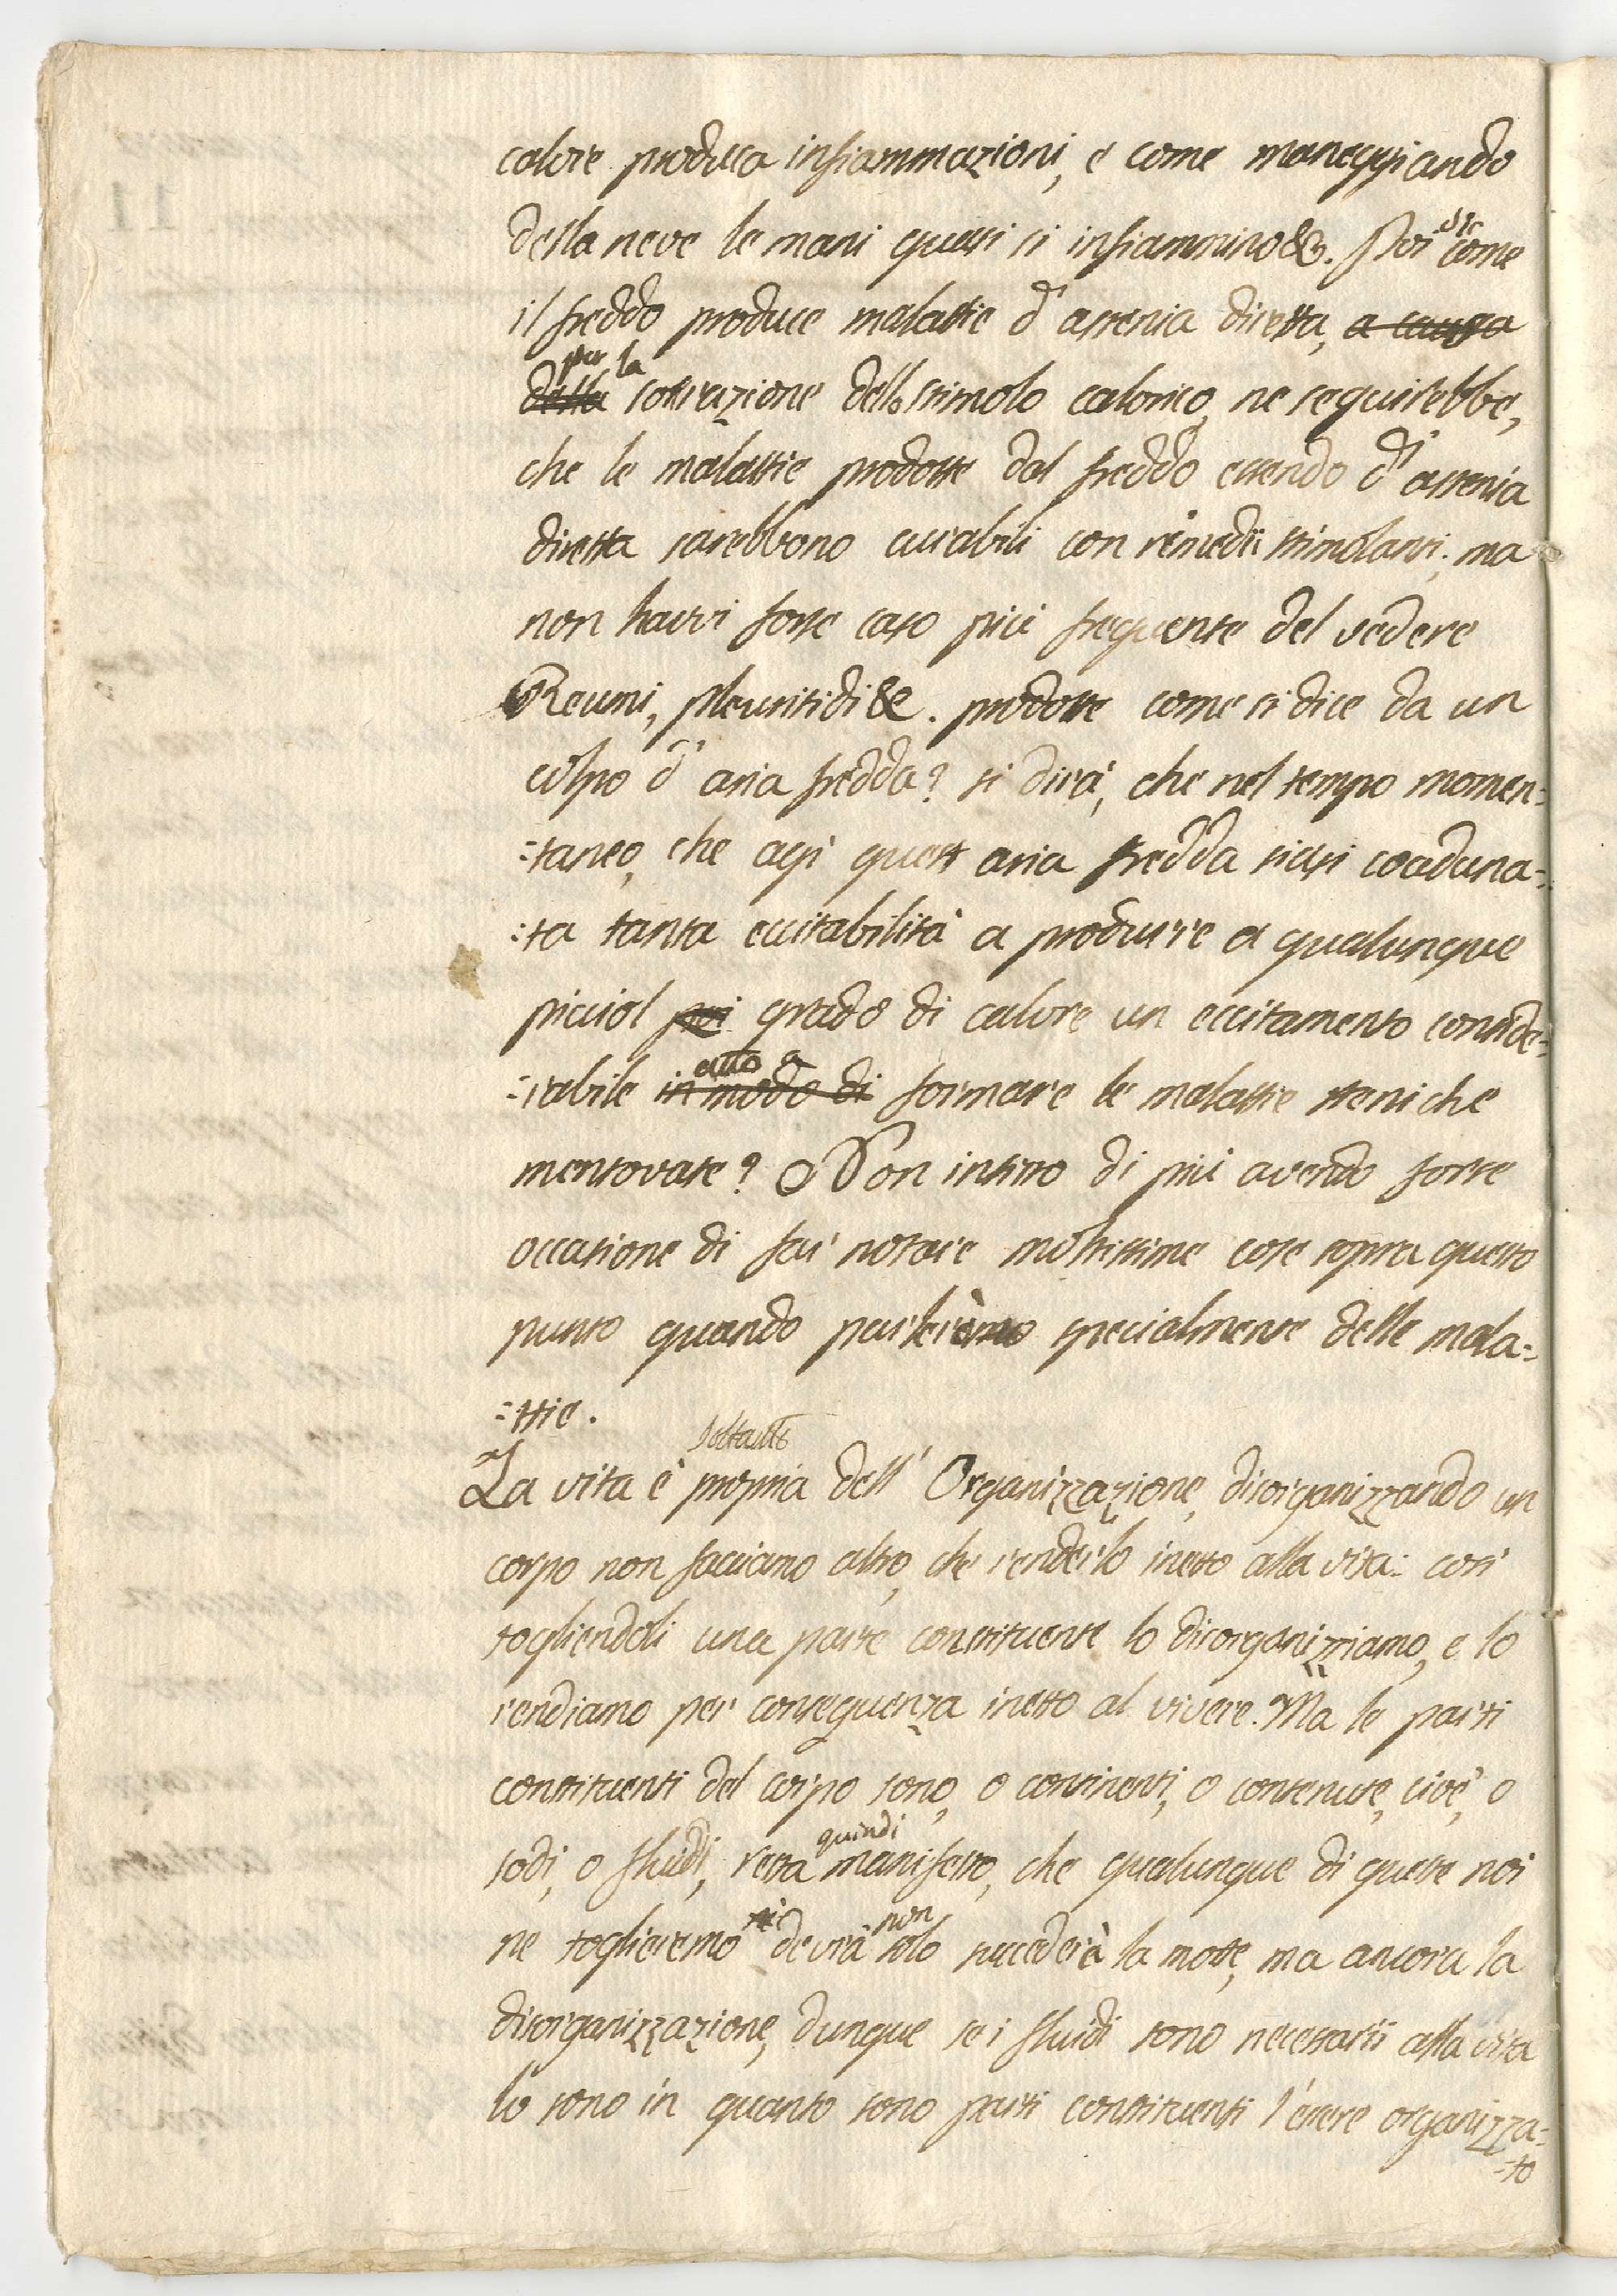 calore produca infiammazioni, e come maneggiando
della neve le mani questi si infiammino &c. Poi se come
il freddo produce malattie d'astenia diretta, a causa
della per la sottrazione dello stimolo calorico, ne seguirebbe,
che le malattie prodotte dal freddo essendo d'astenia
diretta sarebbono curabili con rimedii stimolanti; ma
non havvi forse caso più frequente del vedere
Reumi, pleuritidi &c. prodotte come si dice da un
colpo d'aria fredda? si dirà, che nel tempo momen=
=taneo, che agì quest aria fredda siasi coaduna=
=ta tanta eccitabilità a produrre a qualunque
picciol poi grado di calore un eccitamento conside=
=rabile in modo di atto a formare le malattie steniche
mentovate? Non insisto di più avendo forse
occasione di far notare moltissime cose sopra questo
punto quando parleremo specialmente delle mala=
=ttie.
La vita è soltanto propria dell' Organizzazione, disorganizzando un
corpo non facciamo altro, che renderlo inetto alla vita: così
togliendoli una parte constituente lo disorganizziamo, e lo
rendiamo per conseguenza inetto al vivere. Ma le parti
constituenti del corpo sono, o continenti, o contenute, cioè, o
sodi, o fluidi, resta quindi manifesto, che qualunque di queste noi
ne toglieremo devrà non solo succederà la morte, ma ancora la
disorganizzazione, dunque se i fluidi sono necessarii alla vita
lo sono in quanto sono parti constituenti l'essere organizza=
=to